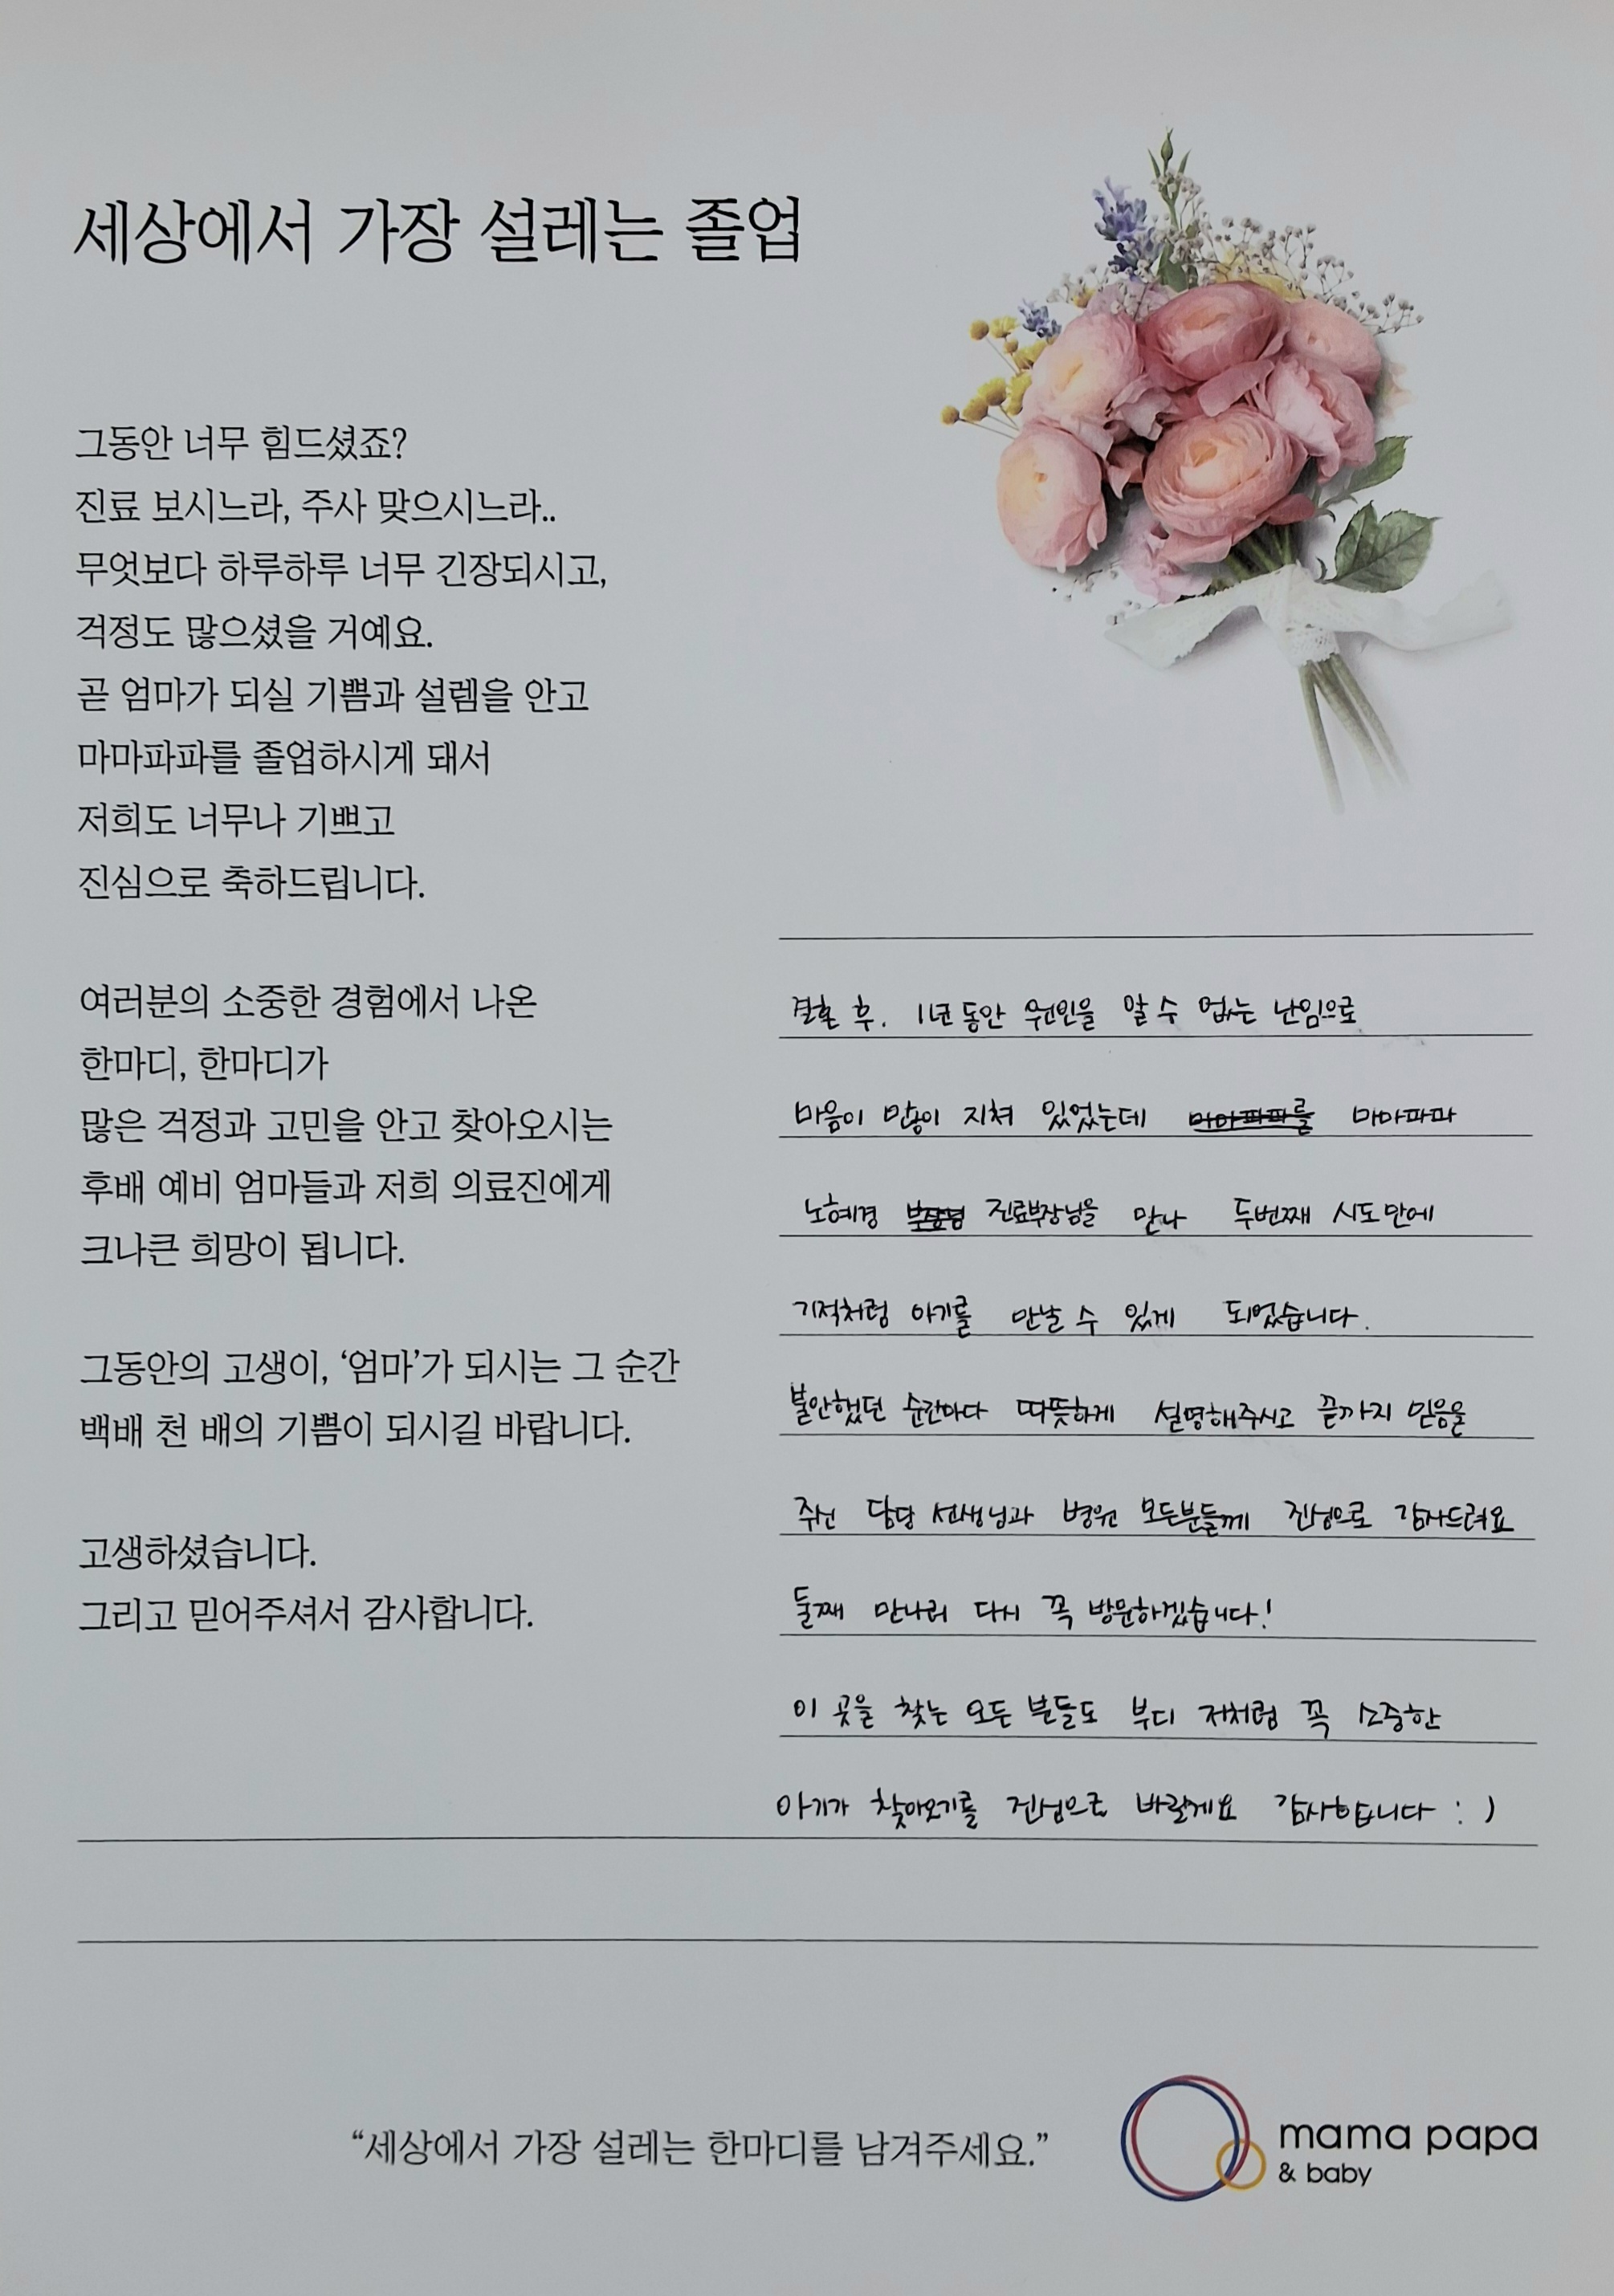 세상에서 가장 설레는 졸업
그동안 너무 힘드셨죠?
진료 보시느라, 주사 맞으시느라..
무엇보다 하루하루 너무 긴장되시고,
걱정도 많으셨을 거예요.
곧 엄마가 되실 기쁨과 설렘을 안고
마마파파를 졸업하시게 돼서
저희도 너무나 기쁘고
진심으로 축하드립니다.
여러분의 소중한 경험에서 나온
한마디, 한마디가
많은 걱정과 고민을 안고 찾아오시는
후배 예비 엄마들과 저희 의료진에게
크나큰 희망이 됩니다.
그동안의 고생이, ‘엄마’가 되시는 그 순간
백배 천 배의 기쁨이 되시길 바랍니다.
고생하셨습니다.
그리고 믿어주셔서 감사합니다.
결혼 후. 1년동안 원인을 알 수 없는 난임으로
마음이 많이 지쳐 있었는데 마마파파를 마마파파
노혜경 부장님 진료부장님을 만나 두번째 시도만에
기적처럼 아기를 만날 수 있게 되었습니다.
불안했던 순간마다 따뜻하게 설명해주시고 끝까지 믿음을
주신 담당 선생님과 병원 모든분들께 진심으로 감사드려요
둘째 만나러 다시 꼭 방문하겠습니다!
이 곳을 찾는 모든 분들도 부디 저처럼 꼭 소중한
아기가 찾아오기를 진심으로 바랄게요 감사합니다 : )
“세상에서 가장 설레는 한마디를 남겨주세요.”
mama papa
& baby